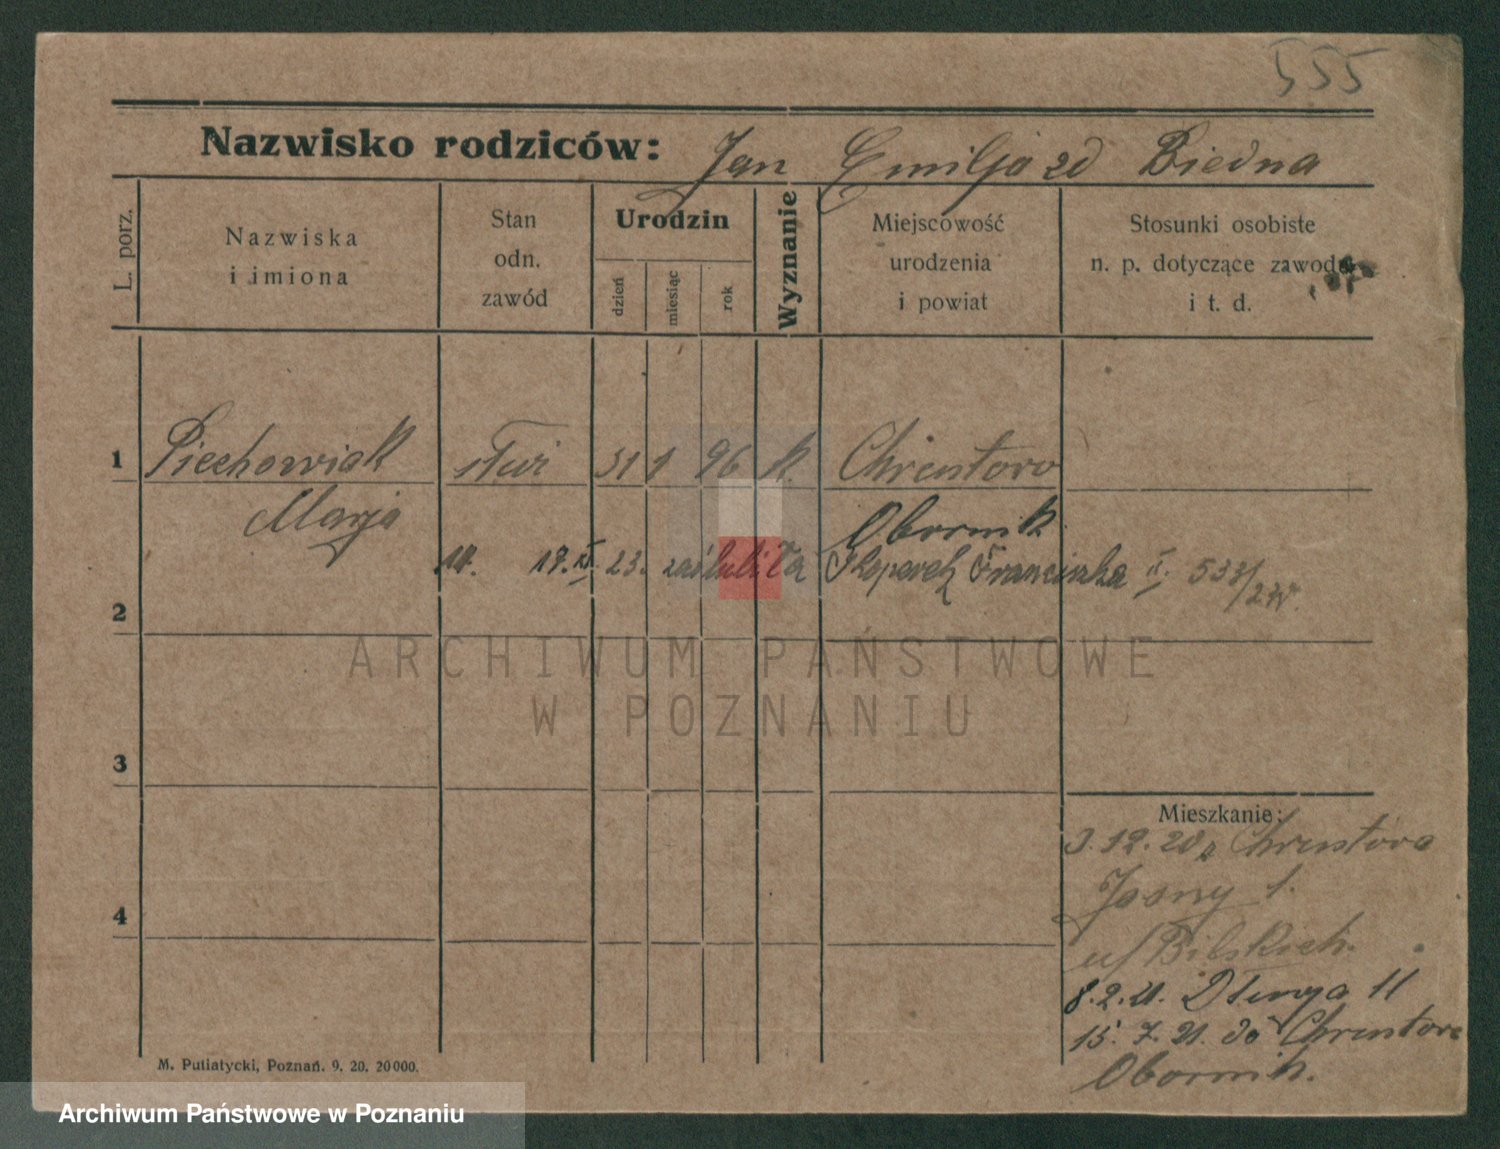 555
Nazwisko rodziców: Jan Emilja zd Biedna
L. porz.
Nazwiska
i imiona
Stan
odn.
zawód
Urodzin
dzień
miesiąc
rok
Wyznanie
Miejscowość
urodzenia
i powiat
Stosunki osobiste
n. p. dotyczące zawodu
i t. d.
1 Piechowiak służ 31 1 96 k. Chrustowo
Marja Obornik
14. 17. IX. 23. zaślubiła Franciszka 533/23
2
ARCHIWUM PAŃSTWOWE
W POZNANIU
3
Mieszkanie:
3.12.20 z Chrustowa
4 Jasny 1.
u/ Bilskich.
8.2.21. Długa 11
15.7.21. do Chrustowa
Obornik.
M. Putiatycki, Poznań. 9. 20. 20000.
Archiwum Państwowe w Poznaniu